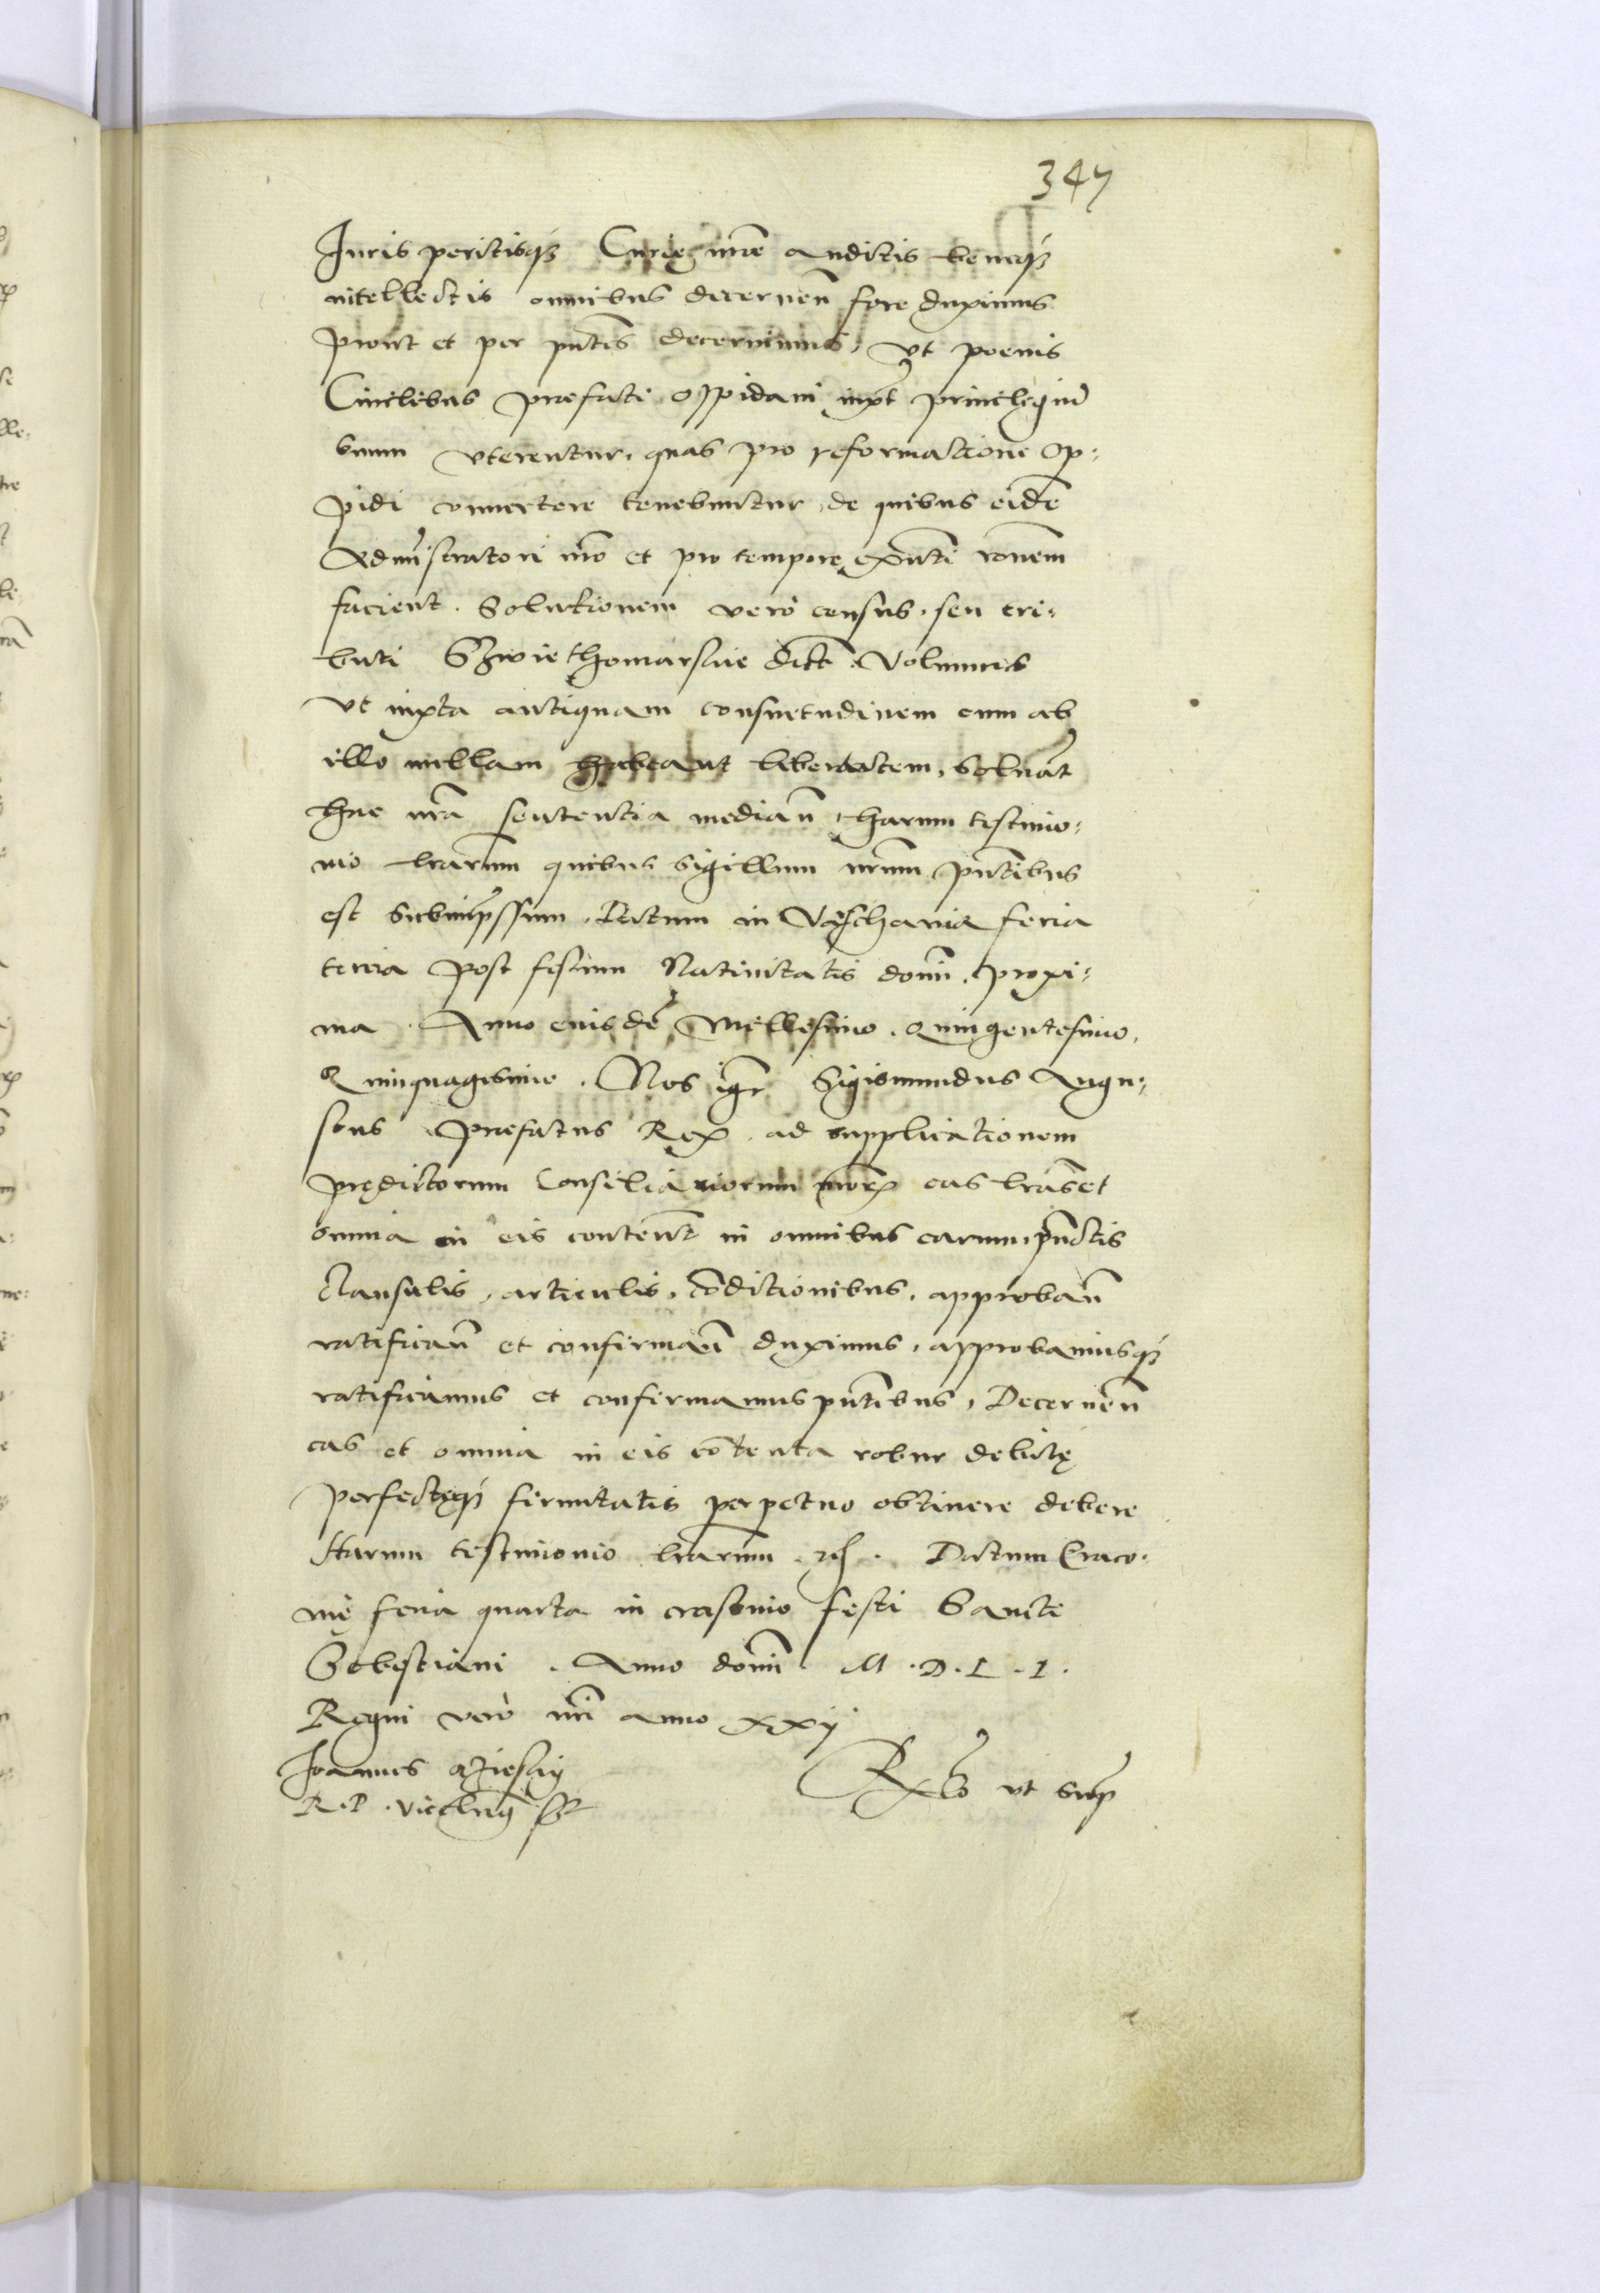 347
Iuris peritisq₃ Curię nr̃e auditis beneq₃
intellectis omnibus decernen̄ fore duximus
prout et per pn̄tes decernimus, Vt poenis
Ciuilibus praefati oppidani iuxt priuilegiū
suum vterentur, quas pro reformatione op⸗
pidi conuertere tenebuntur, de quibus eidē
Administratori nr̃o et pro tempore exn̄ti rōnem
facient. Solutionem vero census, seu tri⸗
buti dict̃. Volumus
Vt iuxta antiquam consuetudinem cum ab
illo nullam habeant libertatem, Soluāt
hac nr̃a sententia median̄, harum testimo⸗
nio lr̃arum quibus sigillum nr̃um pn̄tibus
est subimp̄ssum. Datum in Varschauia feria
tercia post festum Natiuitatis domī, proxi⸗
ma. Anno eiusdē, Millesimo. Quingentesimo,
Quinquagesimo. Nos igr̃ Sigismundus Augu⸗
stus praefatus Rex, ad supplicationem
prędictorum Consiliariorum nr̃or̃ eas lr̃as et
omnia in eis content̃ in omnibus earum, pūctis
Clausulis, articulis, cōditionibus, approban̄
ratifican̄ et confirman̄ duximus, approbamusq₃
ratificamus et confirmamus pn̄tibus, Decernen̄
eas et omnia in eis cōtenta robur debitę
perfectęq₃ firmitatis perpetuo obtinere debere
Harum testimonio lr̃arum. Datum Craco⸗
uię feria quarta in crastino festi Sancti
Sebestiani. Anno domī. M.D.L.I.
Regni vero nr̃i anno xxij
Joannes
R.P. vicecãn̄ ss
Rō vt sup̄